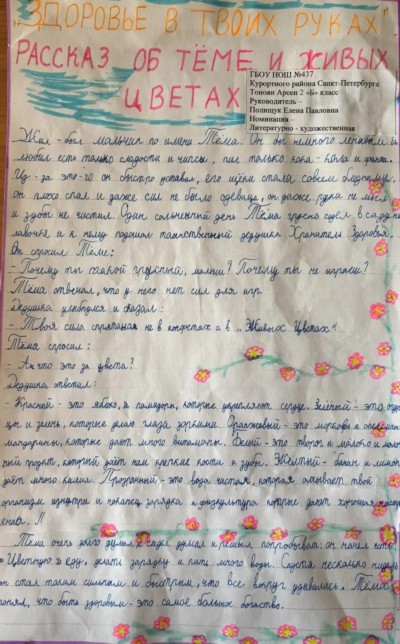 „ЗДОРОВЬЕ В ТВОИХ РУКАХ"
РАССКАЗ ОБ ТЁМЕ И ЖИВЫХ
ЦВЕТАХ
ГБОУ НОШ №437
Курортного района Санкт-Петербурга
Тоноян Арсен 2 «Б» класс
Руководитель –
Полищук Елена Павловна
Номинация –
Литературно - художественная
Жил - был мальчик по имени Тёма. Он был немного ленивым и
любил есть только сладости и чипсы, пил только кока - кола и фанта.
Из - за это-го он быстро уставал, его щёки стали совсем бледными,
он плохо спал и даже сил не было одеваться, он даже руки не мыл
и зубы не чистил. Один солнечный день Тёма грустно сидел в саду на
лавочке и к нему подошёл таинственный дедушка Хранитель Здоровья.
Он спросил Тёме:
- Почему ты такой грустный, малыш? Почему ты не играешь?
Тёма отвечал, что у него нет сил для игр.
Дедушка улыбнулся и сказал:
- Твоя сила спрятаная не в конфетах а в „Живых Цветах"
Тёма спросил:
- А что это за цвета?
Дедушка ответил:
- Красный - это яблоко, и помидоры, которые укрепляют сердце. Зелёный - это огур
цы и зелень, которые делаю глаза зоркими. Оранжевый - это морковь и апельсины
мандарины, которые дают много витамины. Белый - это творог и молоко и молоч
ный продукт, который даёт нам крепкие кости и зубы. Жёлтый - банан и лимон
даёт много калия. Прозрачный - это вода чистая, которая омывает твой
организм изнутри и наконец зарядка и физкультура которые дают хорошее настро
ение. !!
Тёма очень долго думал и сидел думал и решил попробывать: он начел есть
"Цветную" еду, делать зарядку и пить много воды. Спустя несколько недель
он стал таким сильным и быстрым, что все вокруг удивились. Тёма
понял, что быть здоровым - это самое большое богатство.